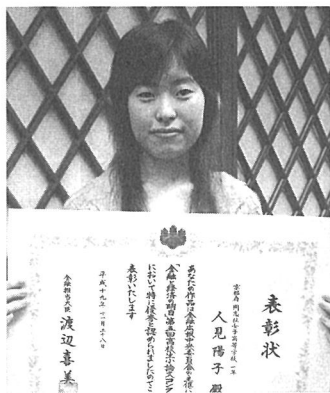 表彰状
京都府 同志社女子高等学校 一年
人見陽子 殿
あなたの作品は金融広報中央委員会主催に
「金融と経済の明日」第五回高校生小論文コンク
において特に優秀と認められましたのでこ
表彰いたします
平成十九年十二月二十八日
金融担当大臣 渡辺喜美